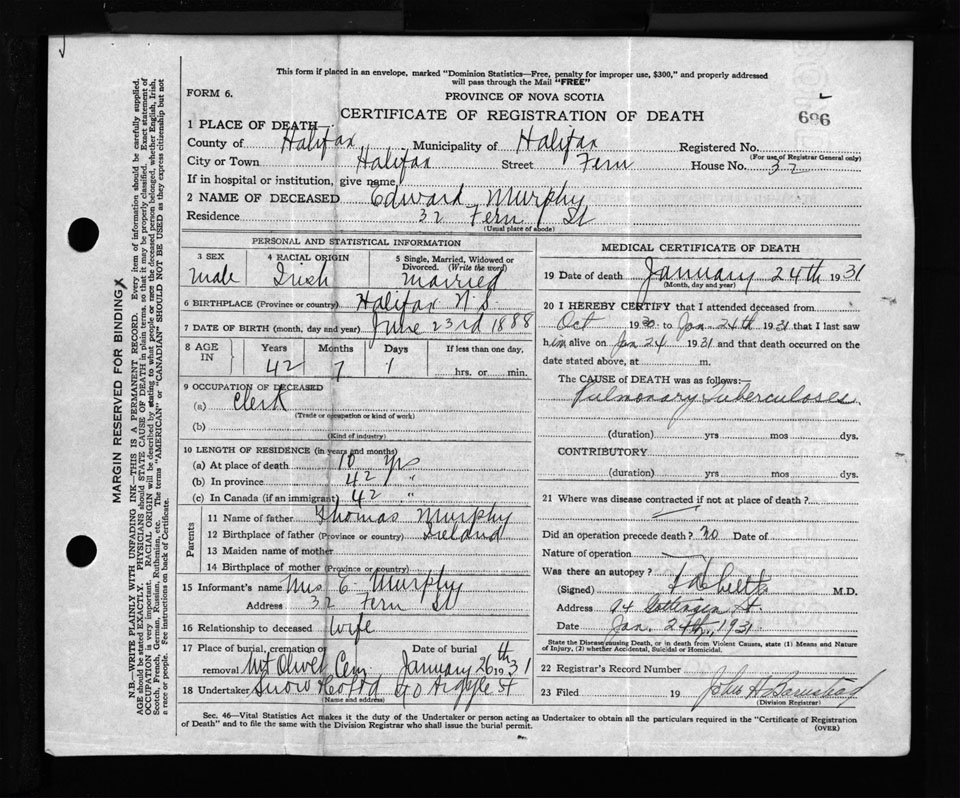 This form if placed in an envelope, marked "Dominion Statistics—Free, penalty for improper use, $300," and properly addressed
will pass through the Mail "FREE"
FORM 6.
PROVINCE OF NOVA SCOTIA
CERTIFICATE OF REGISTRATION OF DEATH
696
1 PLACE OF DEATH—
County of Halifax Municipality of Halifax Registered No.
(For use of Registrar General only)
City or Town Halifax Street Fern House No. 32
If in hospital or institution, give name
2 NAME OF DECEASED Edward Murphy
Residence 32 Fern St
(Usual place of abode)
PERSONAL AND STATISTICAL INFORMATION
3 SEX 4 RACIAL ORIGIN 5 Single, Married, Widowed or
Divorced. (Write the word)
Male Irish Married
6 BIRTHPLACE (Province or country) Halifax N.S.
7 DATE OF BIRTH (month, day and year) June 23rd 1888
8 AGE IN Years Months Days If less than one day,
42 7 1 hrs. or min.
9 OCCUPATION OF DECEASED
(a) Clerk
(Trade or occupation or kind of work)
(b)
(Kind of industry)
10 LENGTH OF RESIDENCE (in years and months)
(a) At place of death 10 yrs
(b) In province 42 "
(c) In Canada (if an immigrant) 42 "
Parents
11 Name of father Thomas Murphy
12 Birthplace of father (Province or country) Ireland
13 Maiden name of mother
14 Birthplace of mother (Province or country)
15 Informant's name Mrs E. Murphy
Address 32 Fern St
16 Relationship to deceased Wife
17 Place of burial, cremation or Date of burial
removal Mt Olivet Cem January 26th 1931
18 Undertaker Snow & Co Ltd 90 Argyle St
(Name and address)
MEDICAL CERTIFICATE OF DEATH
19 Date of death January 24th 1931
(Month, day and year)
20 I HEREBY CERTIFY that I attended deceased from
Oct 1930 to Jan 24th 1931 that I last saw
him alive on Jan 24 1931 and that death occurred on the
date stated above, at m.
The CAUSE of DEATH was as follows:
Pulmonary Tuberculoses
(duration) yrs mos dys.
CONTRIBUTORY
(duration) yrs mos dys.
21 Where was disease contracted if not at place of death?
Did an operation precede death? Date of
Nature of operation
Was there an autopsy?
(Signed) M.D.
Address 94 Gottingen St.
Date Jan. 24th, 1931
State the Disease causing Death, or in death from Violent Causes, state (1) Means and Nature
of Injury, (2) whether Accidental, Suicidal or Homicidal.
22 Registrar's Record Number
23 Filed 19 John H Barnstead
(Division Registrar)
Sec. 46—Vital Statistics Act makes it the duty of the Undertaker or person acting as Undertaker to obtain all the particulars required in the "Certificate of Registration
of Death" and to file the same with the Division Registrar who shall issue the burial permit.
(OVER)
MARGIN RESERVED FOR BINDING
N.B.—WRITE PLAINLY WITH UNFADING INK—THIS IS A PERMANENT RECORD. Every item of information should be carefully supplied.
AGE should be stated EXACTLY. PHYSICIANS should STATE CAUSE OF DEATH in plain terms, so that it may be properly classified. Exact statement of
OCCUPATION is very important. RACIAL ORIGIN will be described by stating to what people or race the deceased person belonged, whether English, Irish,
Scotch, French, German, Russian, Ruthenian, etc. The terms "AMERICAN" or "CANADIAN" SHOULD NOT BE USED as they express citizenship but not
a race or people. Fee instructions on back of Certificate.